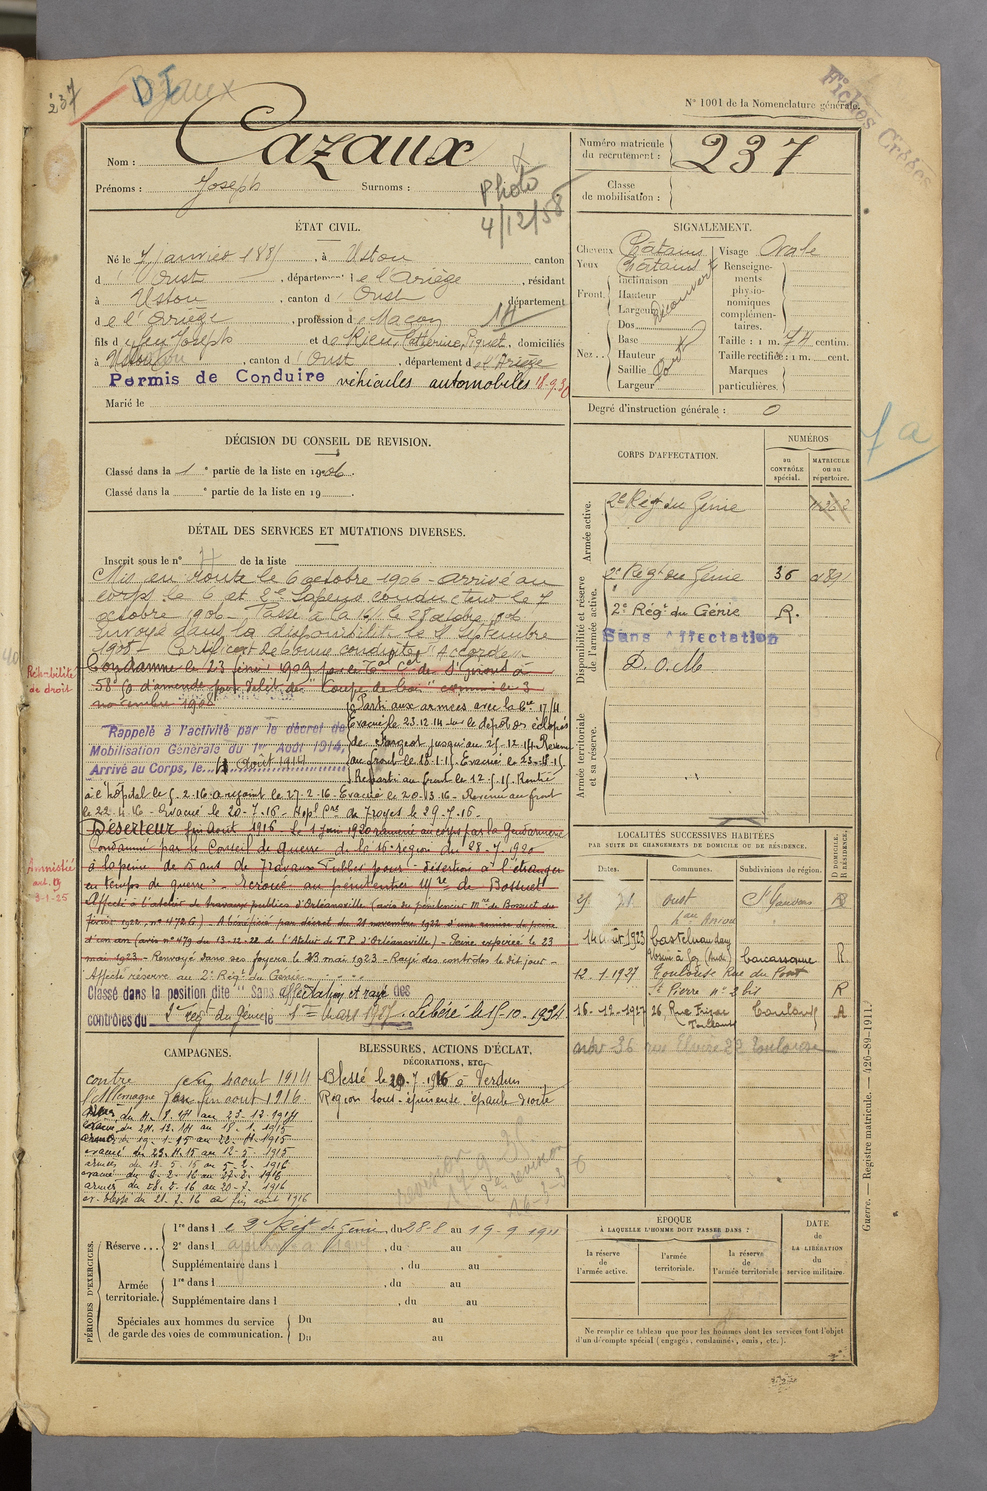 237
DI
Fiches Créées
N° 1001 de la Nomenclature générale.
Nom : Cazaux
Prénoms : Joseph Surnoms :
Photo
4/12/58
Numéro matricule du recrutement : 237
Classe de mobilisation :
ÉTAT CIVIL.
Né le 7 janvier 1885, à Ustou canton
d'Oust, département de l'Ariège, résidant
à Ustou, canton d'Oust département
de l'Ariège, profession de Maçon
fils de feu Joseph et de Rieu, Catherine, domiciliés
à Ustou, canton d'Oust, département de l'Ariège
Permis de Conduire véhicules automobiles 18-9-30
Marié le
SIGNALEMENT.
Cheveux Châtains
Yeux Châtains
Front. Inclinaison
Hauteur
Largeur
Découvert
Nez... Dos
Base
Hauteur
Saillie
Largeur
Visage Ovale
Renseignements physionomiques complémentaires.
Taille : 1 m. 74 centim.
Taille rectifiée : 1 m. cent.
Marques particulières.
Degré d'instruction générale : 0
DÉCISION DU CONSEIL DE REVISION.
Classé dans la 1e partie de la liste en 1906.
Classé dans la e partie de la liste en 19 .
CORPS D'AFFECTATION.
NUMÉROS
au CONTRÔLE spécial.
MATRICULE ou au répertoire.
Armée active.
2e Régt du Génie
Disponibilité et réserve de l'armée active.
2e Régt du Génie 36
2e Régt du Génie R.
Sans Affectation
D.O.M
Armée territoriale et sa réserve.
DÉTAIL DES SERVICES ET MUTATIONS DIVERSES.
Inscrit sous le n° de la liste
Mis en route le 6 octobre 1906 - arrivé au
corps le 6 et 2e Sapeur conducteur le 7
octobre 1906 - Passé à la 16/ le 28 octobre 1906
Envoyé dans la disponibilité le Septembre
1908 - Certificat de bonne conduite "Accordé"
Réhabilité de droit
Condamné le 23 février 1909 par le Tal Cel de St Girons à
50 f d'amende pour délit de "Coupe de bois" commis le 3
novembre 1908
Rappelé à l'activité par le décret de
Mobilisation Générale du 1er Août 1914,
Arrivé au Corps, le 4 Août 1914
Parti aux armées avec la Cie 17/4
Evacué le 23.12.14 sur le dépôt des éclopés
de jusqu'au 25-12-14 Revenu
au front le 18-1-15. Evacué le 23-4-15
Reparti au front le 12-5-15 Rentré
à l'hôpital le 5-2-16 a rejoint le 27-2-16 Evacué le 20-3-16 - Revenu au front
le 22-4-16 - Evacué le 20-7-16 - Hopl Cre de Troyes le 29-7-16 -
Déserteur fin août 1916 Le 1 Juin 1920 ramené au corps par la Gendarmerie
Condamné par le Conseil de guerre de la 16e région du 28-7-1920
à la peine de 5 ans de Travaux Publics pour "désertion à l'étranger
en temps de guerre" - Ecroué au pénitencier Mre de Bossuet
Amnistié
art. 3-1-25
Affecté à l'atelier de travaux publics d'Orléansville (avis du pénitencier Mre de Bossuet du
février 1922, n° 472G) - A bénéficié par décret du 21 novembre 1922 d'une remise de peine
d'un an (avis n° 479 du 13-12-22 de l'Atelier de T.P. d'Orléansville) - Peine expirée le 23
mai 1923 - Renvoyé dans ses foyers le 23 mai 1923 - Rayé des contrôles le dit jour -
Affecté réserve au 2e Régt du Génie
Classé dans la position dite "Sans affectation et rayé des
contrôles du 2e reg du Génie le 1er Mars 1927. Libéré le 15-10-1934
LOCALITÉS SUCCESSIVES HABITÉES
PAR SUITE DE CHANGEMENTS DE DOMICILE OU DE RÉSIDENCE.
Dates. Communes. Subdivisions de région. D DOMICILE, R RÉSIDENCE.
Oust St Gaudens R
14 août 1923 Castelnaudary
Carcassonne R
12-1-1927 Toulouse Rue du Pont
St Pierre n° 2 bis R
16-12-1927 26 Rue Toulouse
nov 36 rue 22 Toulouse
CAMPAGNES.
contre l'Allemagne
du 4 août 1914
fin août 1916
armées du 11.8.14 au 23-12-1914
évacué du 24.12.14 au 18-1-1915
armées du 19-1-15 au 22-4-1915
évacué du 23.4.15 au 12-5-1915
armées du 13-5-15 au 5-2-1916
évacué du 6-2-16 au 27-2-1916
armées du 28-2-16 au 20-7-1916
ev. blessé du 21-7-16 au fin août 1916
BLESSURES, ACTIONS D'ÉCLAT,
DÉCORATIONS, ETC.
Blessé le 20-7-1916 à Verdun
Région sous-épineuse épaule droite
PÉRIODES D'EXERCICES.
Réserve... 1re dans le 2e Régt de génie, du 28-8 au 19-9-1911
2e dans l , du au
Supplémentaire dans l , du au
Armée territoriale. 1re dans l , du au
Supplémentaire dans l , du au
Spéciales aux hommes du service de garde des voies de communication. Du au
Du au
ÉPOQUE
À LAQUELLE L'HOMME DOIT PASSER DANS :
la réserve de l'armée active.
l'armée territoriale.
la réserve de l'armée territoriale.
DATE de LA LIBÉRATION du service militaire.
Ne remplir ce tableau que pour les hommes dont les services font l'objet
d'un décompte spécial (engagés, condamnés, omis, etc.).
Guerre. — Registre matricule. — 426-89-1911.